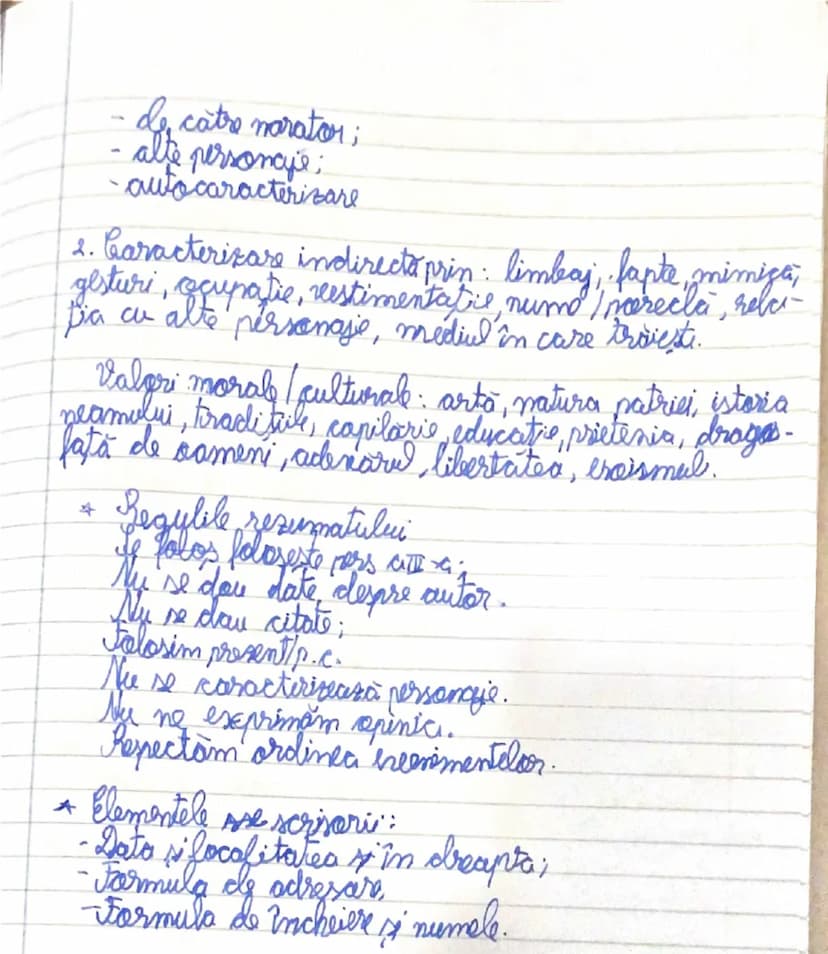 - de către narator;
- alte personaje;
- autocaracterizare
2. Caracterizare indirectă prin: limbaj, fapte, mimică,
gesturi, ocupație, vestimentație, nume/poreclă, rela-
ția cu alte personaje, mediul în care trăiește.
Valori morale/culturale: artă, natura patriei, istoria
neamului, tradițiile, copilărie, educație, prietenia, dragos-
față de oameni, adevărul, libertatea, eroismul.
* Regulile rezumatului
Se folos folosește pers a III-a;
Nu se dau date despre autor.
Nu se dau citate;
Folosim prezent/p.c.
Nu se caracterizează personaje.
Nu ne exprimăm opinia.
Respectăm ordinea evenimentelor.
* Elementele scrisorii:
- Data și localitatea și în dreapta;
- Formula de adresare,
- Formula de încheiere și numele.